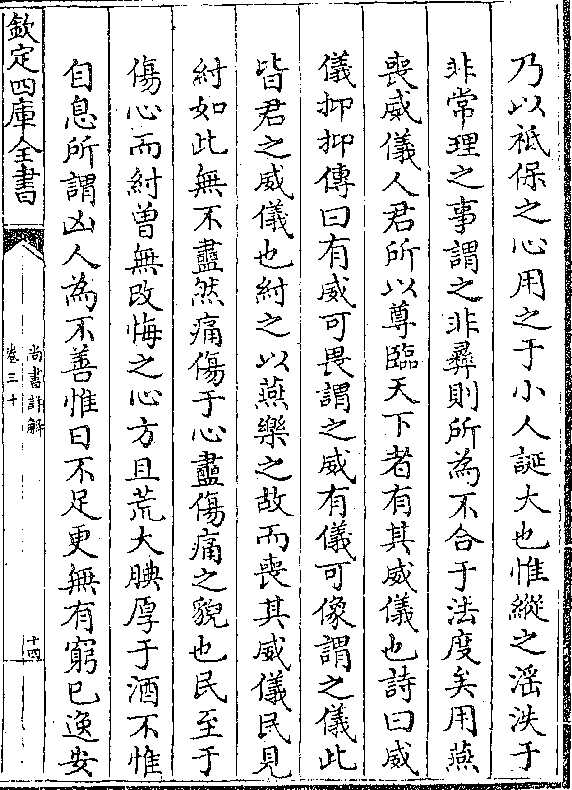 乃以祗保之心用之于小人誕大也惟縱之滛泆于
非常理之事謂之非彞則所為不合于法度矣用燕
喪威儀人君所以尊臨天下者有其威儀也詩曰威
儀抑抑傳曰有威可畏謂之威有儀可像謂之儀此
皆君之威儀也紂之以燕樂之故而喪其威儀民見
紂如此無不盡然痛傷于心盡傷痛之貌也民至于
傷心而紂曾無改悔之心方且荒大腆厚于酒不惟
自息所謂凶人為不善惟曰不足更無有窮已逸安
欽定四庫全書
尚書詳解
卷三十
十四